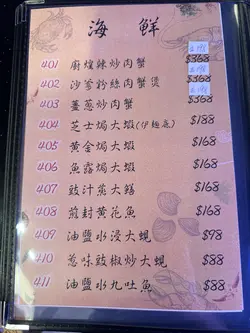 海鮮
401 廚煌辣炒肉蟹 $368
402 沙爹粉絲肉蟹煲 $368
403 薑蔥炒肉蟹 $368
404 芝士焗大蝦(伊麵底) $188
405 黃金焗大蝦 $168
406 魚露焗大蝦 $168
407 豉汁蒸大鱔 $168
408 煎封黃花魚 $168
409 油鹽水浸大蜆 $98
410 惹味豉椒炒大蜆 $88
411 油鹽水九吐魚 $88